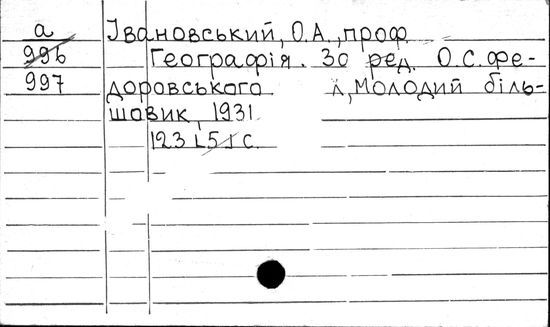 а
996
997
Івановський, О.А., проф.
Географія. За ред. О.С. Фе-
доровського Х., Молодий біль-
шовик, 1931
123 [5] с.